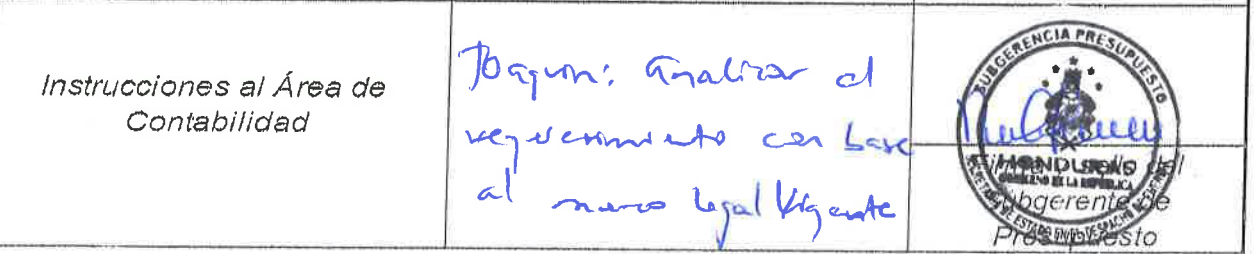 Instrucciones al Área de
Contabilidad
Joaquin: Analizar el
requerimiento con base
al marco legal Vigente
SUBGERENCIA PRESUPUESTO
HONDURAS
GOBIERNO DE LA REPÚBLICA
Firma y sello del
Subgerente de
Presupuesto